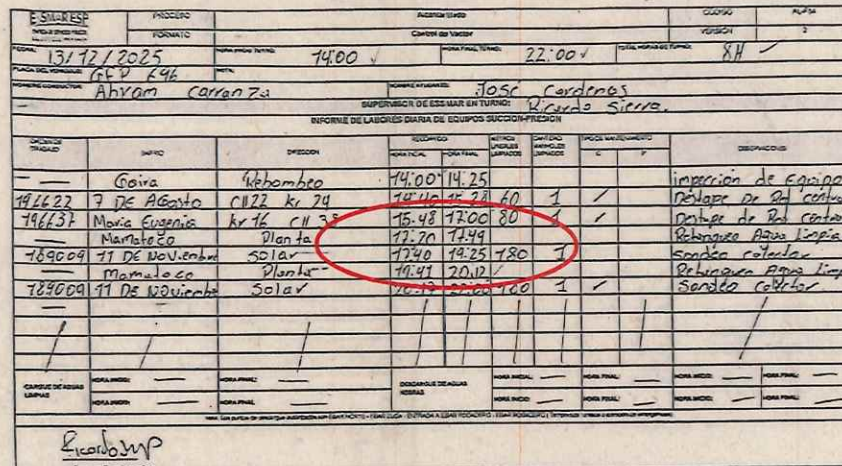 ESMAR ESP PROCESO Alcantarillado CODIGO
FORMATO Control de Vactor VERSION 2
FECHA: 13/12/2025 HORA INICIO TURNO: 14:00 HORA FINAL TURNO: 22:00 TOTAL HORAS DE TURNO: 8H
PLACA DEL VEHICULO: GFP 696 NOTA:
NOMBRE CONDUCTOR: Ahram Carranza NOMBRE AYUDANTE: Jose Cardenas
SUPERVISOR DE ESSMAR EN TURNO: Ricardo Sierra.
INFORME DE LABORES DIARIA DE EQUIPOS SUCCION-PRESION
ORDEN DE TRABAJO BARRIO DIRECCION RECORRIDO METROS LINEALES LIMPIADOS CANTIDAD MANHOLES LIMPIADOS TIPO DE MANTENIMIENTO OBSERVACIONES
HORA INICIAL HORA FINAL C P
— Gaira Rebombeo 14:00 14:25 inspección de Equipo
196622 7 DE Agosto Cll 22 kr 24 14:40 15:28 60 1 / Destape de Red
196637 Maria Eugenia kr 16 Cll 35 15.48 17:00 80 1 / Destape de Red
— Mamatoco Planta 17:20 17:49 Retanqueo Agua Limpia
189009 11 DE Noviembre Solar 17:40 19:25 180 1 sondeo colector
— Mamatoco Planta 19:41 20:12 / Retanqueo Agua Limp
189009 11 DE Noviembre Solar 180 1 / Sondeo Colector
CARGUE DE AGUAS LIMPIAS HORA INICIO: — HORA FINAL: — DESCARGUE DE AGUAS NEGRAS HORA INICIAL: — HORA FINAL: — HORA INICIO: — HORA FINAL: —
HORA INICIO: — HORA FINAL: — HORA INICIO: — HORA FINAL: — HORA INICIO: — HORA FINAL: —